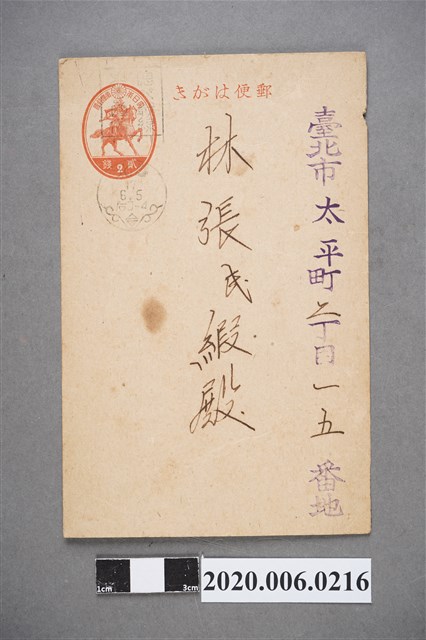 郵便はがき
臺北市太平町二丁目一五番地
林張氏緞殿
貳2錢
6.5
1cm
3cm
2020.006.0216